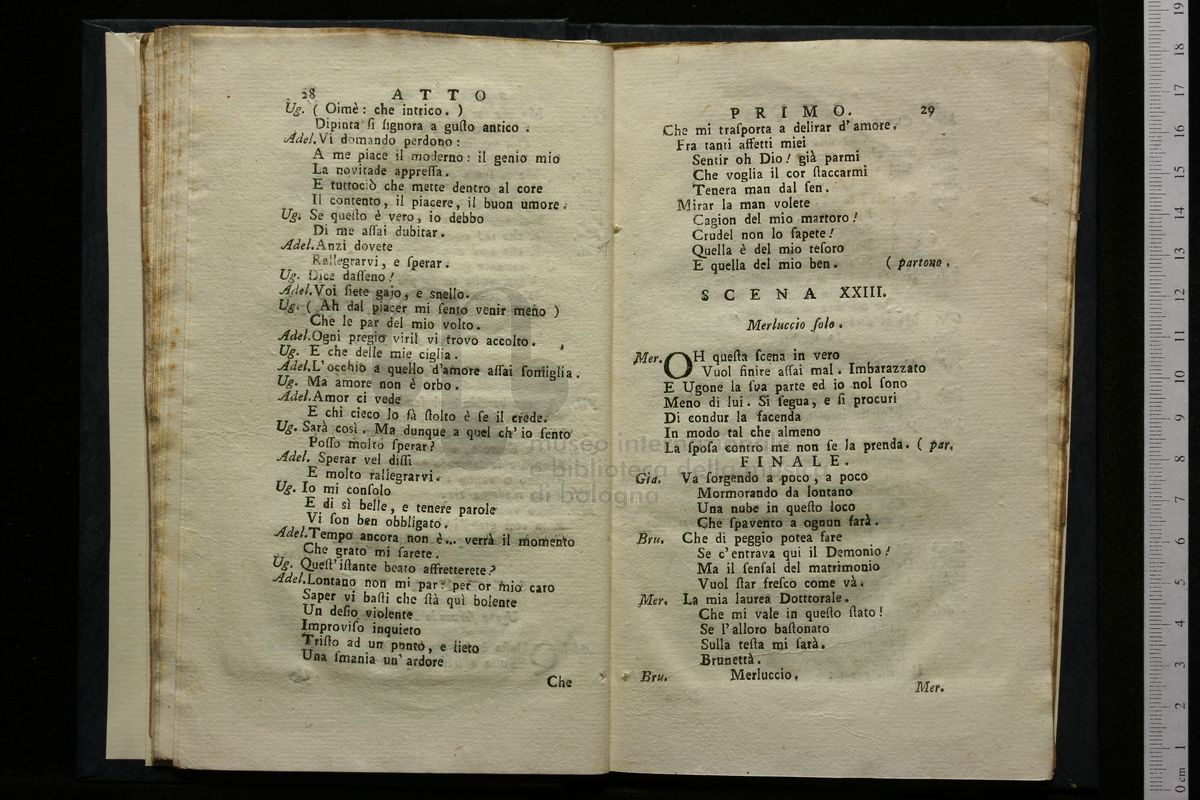 28 ATTO
Ug. ( Oimè : che intrico. )
Dipinta ſi ſignora a guſto antico .
Adel. Vi domando perdono :
A me piace il moderno : il genio mio
La novitade appreſſa .
E tuttociò che mette dentro al core
Il contento , il piacere , il buon umore .
Ug. Se queſto è vero , io debbo
Di me aſſai dubitar .
Adel. Anzi dovete
Rallegrarvi , e ſperar .
Ug. Dice daſſeno !
Adel. Voi ſiete gajo , e snello .
Ug. ( Ah dal piacer mi ſento venir meno )
Che le par del mio volto .
Adel. Ogni pregio viril vi trovo accolto .
Ug. E che delle mie ciglia .
Adel. L'occhio a quello d'amore aſſai ſomiglia .
Ug. Ma amore non è orbo .
Adel. Amor ci vede
E chi cieco lo fà ſtolto è ſe il crede .
Ug. Sarà così . Ma dunque a quel ch' io ſento
Poſſo molto ſperar ?
Adel. Sperar vel diſſi
E molto rallegrarvi .
Ug. Io mi conſolo
E di sì belle , e tenere parole
Vi ſon ben obbligato .
Adel. Tempo ancora non è ... verrà il momento
Che grato mi ſarete .
Ug. Queſt' iſtante beato affretterete ?
Adel. Lontano non mi par : per or mio caro
Saper vi baſti che ſtà quì bolente
Un deſio violente
Improviſo inquieto
Triſto ad un punto , e lieto
Una ſmania un' ardore
Che
PRIMO. 29
Che mi traſporta a delirar d'amore .
Fra tanti affetti miei
Sentir oh Dio ! già parmi
Che voglia il cor ſtaccarmi
Tenera man dal ſen .
Mirar la man volete
Cagion del mio martoro !
Crudel non lo ſapete !
Quella è del mio teſoro
E quella del mio ben . ( partono .
SCENA XXIII.
Merluccio ſolo .
Mer. OH queſta ſcena in vero
Vuol finire aſſai mal . Imbarazzato
E Ugone la ſua parte ed io nol ſono
Meno di lui . Si ſegua , e ſi procuri
Di condur la facenda
In modo tal che almeno
La ſpoſa contro me non ſe la prenda . ( par.
FINALE.
Gia. Va ſorgendo a poco , a poco
Mormorando da lontano
Una nube in queſto loco
Che ſpavento a ognun farà .
Bru. Che di peggio potea fare
Se c'entrava qui il Demonio !
Ma il ſenſal del matrimonio
Vuol ſtar freſco come và .
Mer. La mia laurea Dotttorale .
Che mi vale in queſto ſtato !
Se l'alloro baſtonato
Sulla teſta mi ſarà .
Brunettà .
Bru. Merluccio .
Mer.
museo internazionale
e biblioteca della musica
di bologna